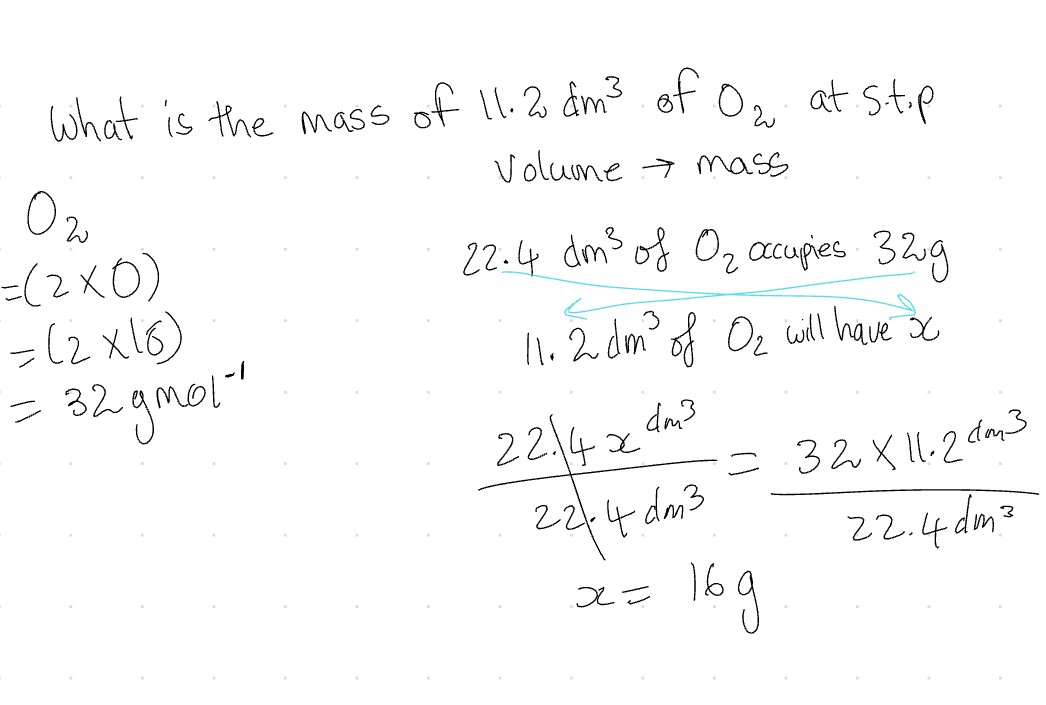 What is the mass of 11.2 dm³ of O₂ at s.t.p
Volume → mass
O₂
=(2×O)
=(2×16)
= 32gmol⁻¹
22.4 dm³ of O₂ occupies 32g
11.2 dm³ of O₂ will have x
22.4x dm³ = 32 × 11.2 dm³
22.4 dm³ 22.4 dm³
x = 16g